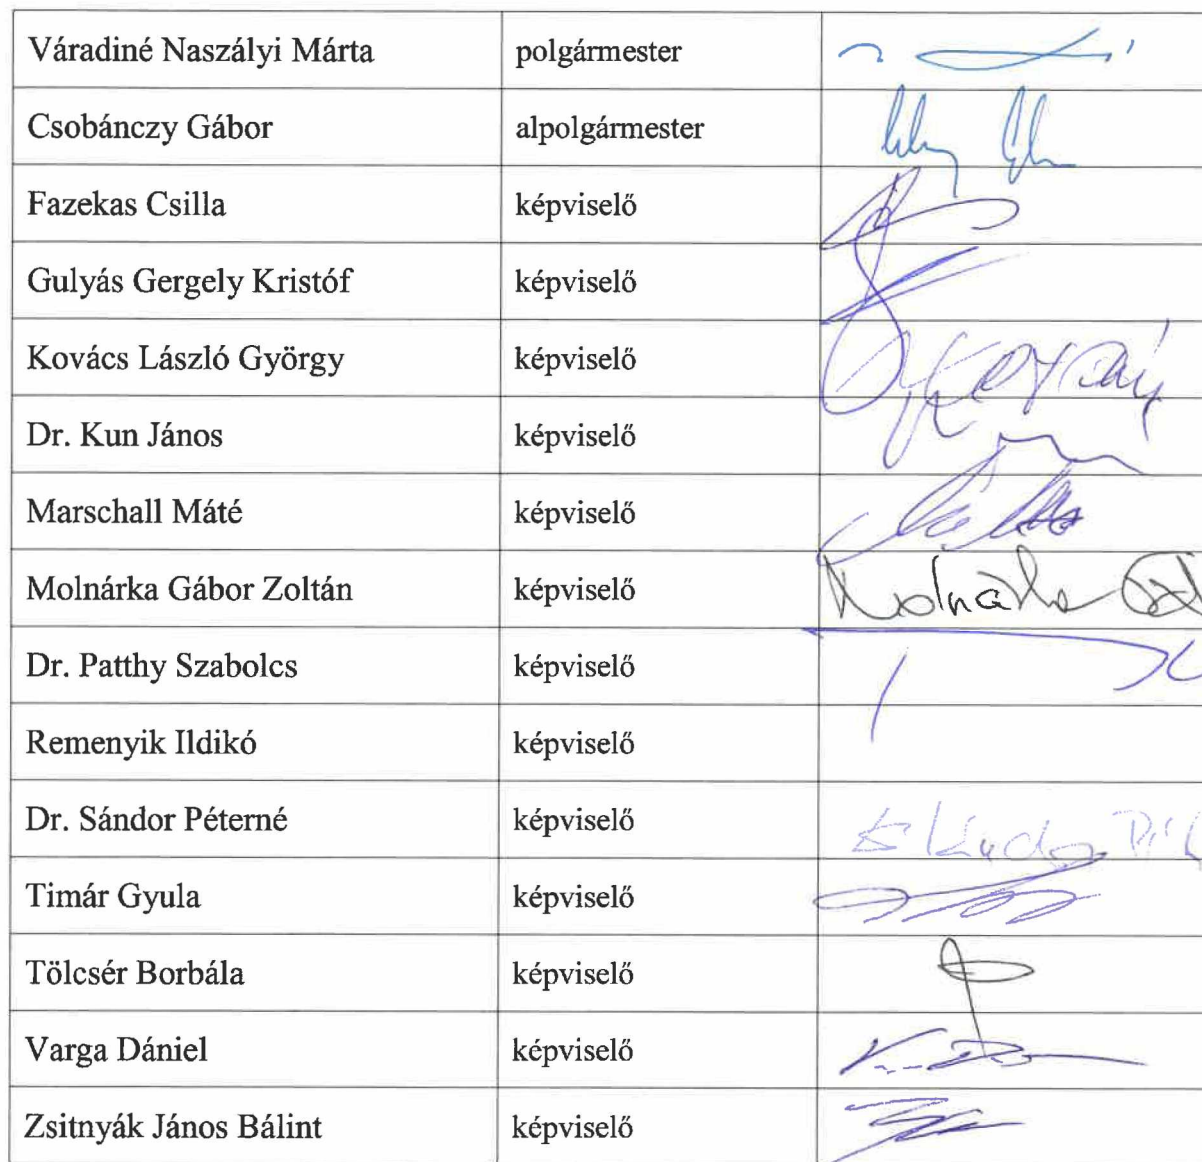 Váradiné Naszályi Márta polgármester
Csobánczy Gábor alpolgármester
Fazekas Csilla képviselő
Gulyás Gergely Kristóf képviselő
Kovács László György képviselő
Dr. Kun János képviselő
Marschall Máté képviselő
Molnárka Gábor Zoltán képviselő Molnárka
Dr. Patthy Szabolcs képviselő
Remenyik Ildikó képviselő
Dr. Sándor Péterné képviselő
Timár Gyula képviselő
Tölcsér Borbála képviselő
Varga Dániel képviselő
Zsitnyák János Bálint képviselő